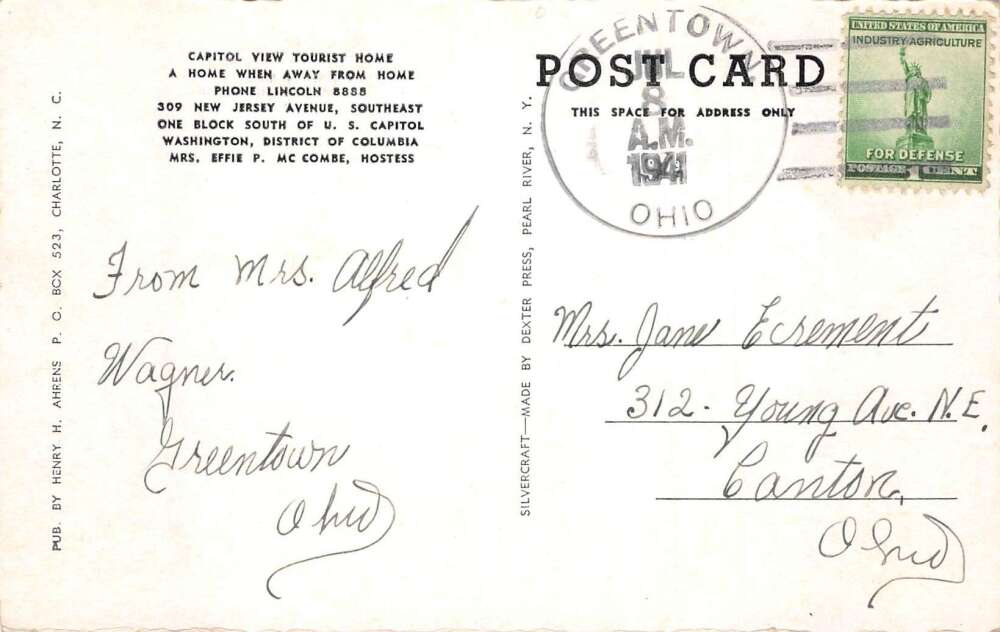 CAPITOL VIEW TOURIST HOME
A HOME WHEN AWAY FROM HOME
PHONE LINCOLN 8888
309 NEW JERSEY AVENUE, SOUTHEAST
ONE BLOCK SOUTH OF U. S. CAPITOL
WASHINGTON, DISTRICT OF COLUMBIA
MRS. EFFIE P. MC COMBE, HOSTESS
POST CARD
THIS SPACE FOR ADDRESS ONLY
GREENTOWN
JUL
8
A.M.
1941
OHIO
UNITED STATES OF AMERICA
INDUSTRY AGRICULTURE
FOR DEFENSE
POSTAGE CENT
PUB. BY HENRY H. AHRENS P. O. BOX 523, CHARLOTTE, N. C.
From Mrs. Alfred
Wagner.
Greentown
Ohio
SILVERCRAFT—MADE BY DEXTER PRESS, PEARL RIVER, N. Y.
Mrs. Jane Ecrement
312. Young Ave. N.E.
Canton,
Ohio